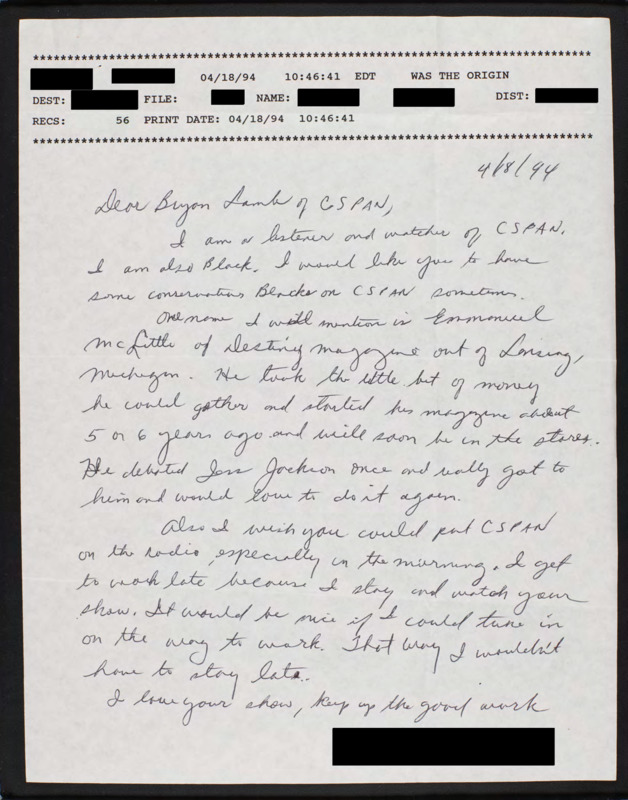 ************************************************************************
04/18/94 10:46:41 EDT WAS THE ORIGIN
DEST: FILE: NAME: DIST:
RECS: 56 PRINT DATE: 04/18/94 10:46:41
************************************************************************
4/18/94
Dear Bryon Lamb of CSPAN,
I am a listener and watcher of CSPAN.
I am also Black. I would like you to have
some conservative Blacks on CSPAN sometimes.
One name I will mention is Emmanuel
McLittle of Destiny magazine out of Lansing,
Michigan. He took the little bit of money
he could gather and started his magazine about
5 or 6 years ago and will soon be in the stores.
He debated Jess Jackson once and really got to
him and would love to do it again.
Also I wish you could put CSPAN
on the radio, especially in the morning. I get
to work late because I stay and watch your
show. It would be nice if I could tune in
on the way to work. That way I wouldn't
have to stay late.
I love your show, keep up the good work